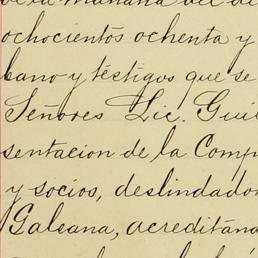 de la mañana del di
ochocientos ochenta y
bano y téstigos que se
Señores Lic. Gui
sentacion de la Comp
y socios, deslindador
Galeana, acreditána